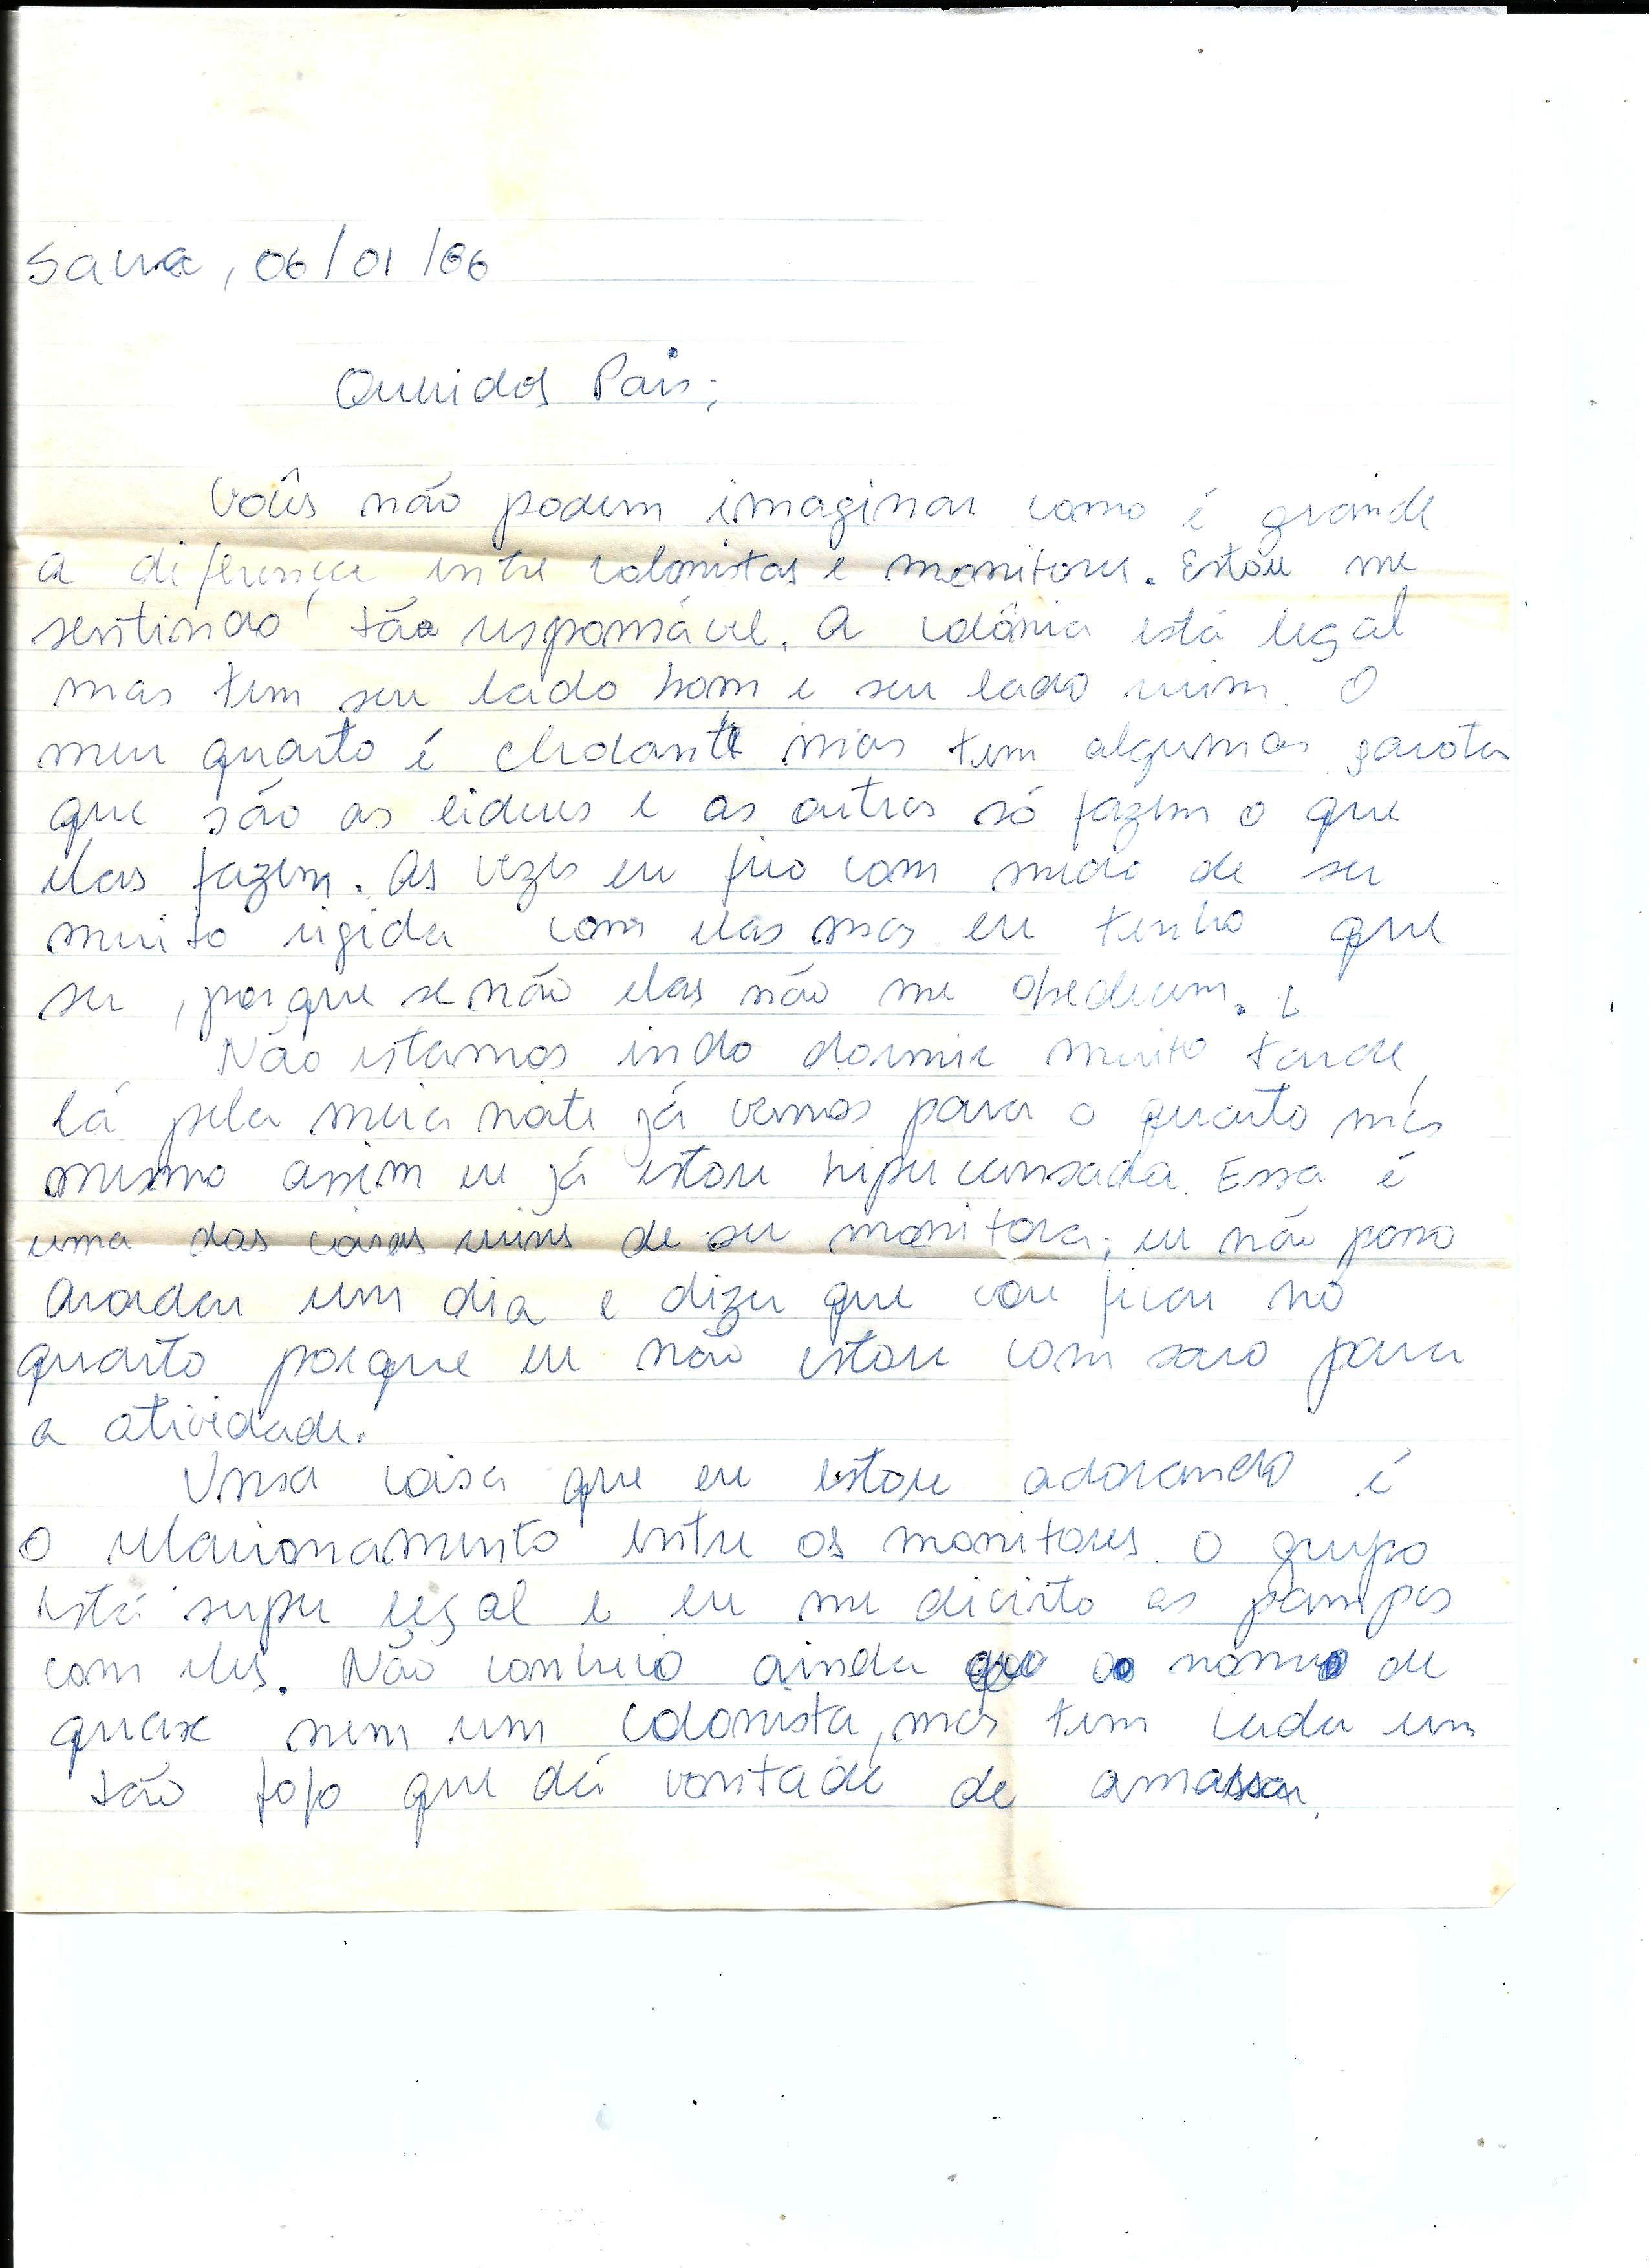 Sacra, 06/01/86
Queridos Pais;
Vocês não podem imaginar como é grande
a diferença entre colonistas e monitores. Estou me
sentindo tão responsável. A colônia está legal
mas tem seu lado bom e seu lado ruim. O
meu quarto é chocante mas tem algumas garotas
que são as lideres e as outras só fazem o que
elas fazem. As vezes eu fico com medo de ser
muito rigida com elas mas eu tenho que
ser, porque se não elas não me obedecem.
Não estamos indo dormir muito tarde,
lá pela meia noite já vamos para o quarto mas
mesmo assim eu já estou hiper cansada. Essa é
uma das coisas ruins de ser monitora; eu não posso
acordar um dia e dizer que vou ficar no
quarto porque eu não estou com saco para
a atividade.
Uma coisa que eu estou adorando é
o relacionamento entre os monitores. O grupo
está super legal e eu me divirto as pampas
com eles. Não conheço ainda o nome de
quase nem um colonista, mas tem cada um
tão fofo que dá vontade de amassar.